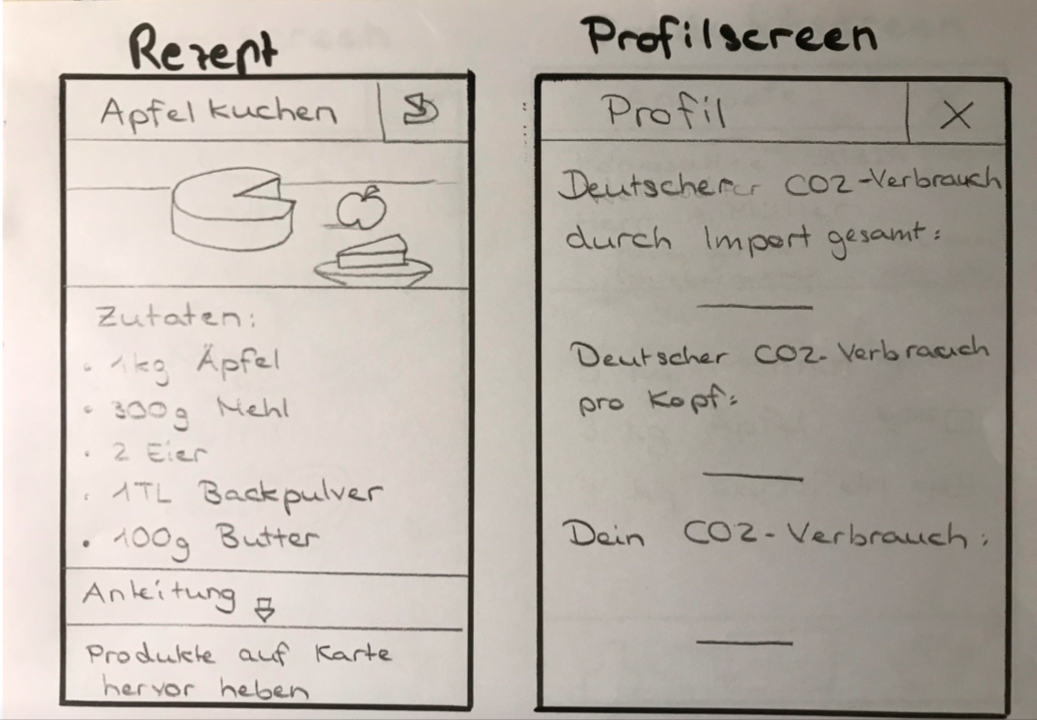 Rezept
Apfelkuchen
Zutaten:
• 1kg Äpfel
• 300g Mehl
• 2 Eier
• 1TL Backpulver
• 100g Butter
Anleitung
Produkte auf Karte
hervor heben
Profilscreen
Profil X
Deutscher CO2-Verbrauch
durch Import gesamt:
Deutscher CO2-Verbrauch
pro Kopf:
Dein CO2-Verbrauch: